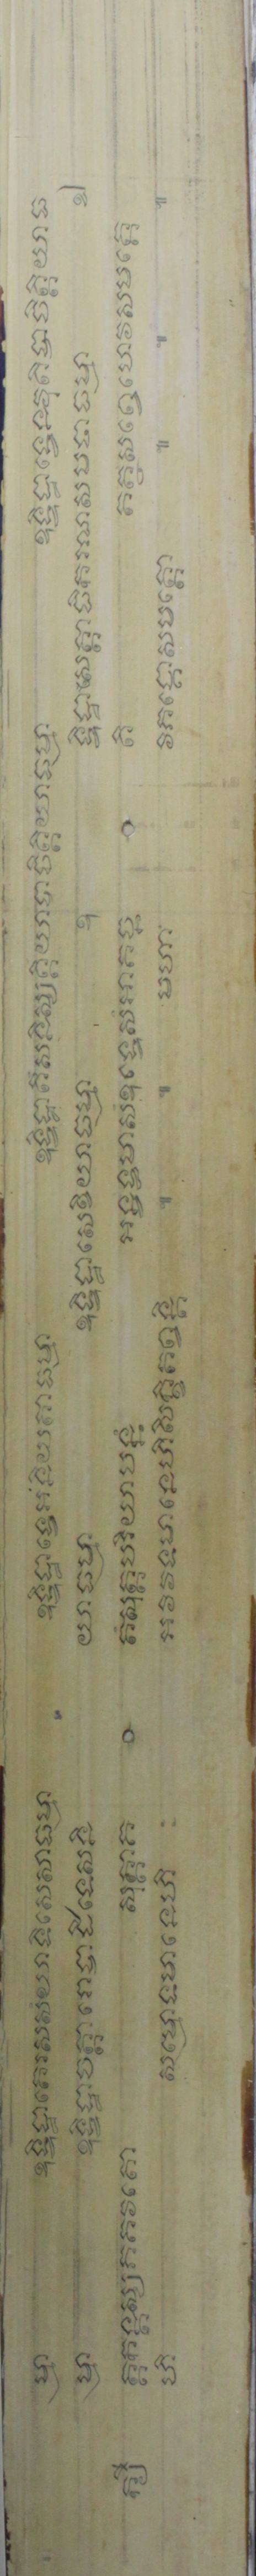 ម្មា ឧទ្ទិដ្ឋាតេរសសំឃាទិសេសាធម្មា ឧទ្ទិដ្ឋាទ្វេអនិយតាធម្មា ឧទ្ទិដ្ឋាតឹសនិស្សគ្គិយាបាចិត្តិយាធម្មា ឧទ្ទិដ្ឋាទ្វេនវុតិបាចិត្តិយាធ
ម្មា ឧទ្ទិដ្ឋាចត្តារោបាដិទេសនិ យាធម្មា ឧទ្ទិដ្ឋាសេខិយាធម្មា ឧ ទ្ទិដ្ឋាសត្តាធិករណសមថាធម្មា ឯ
ត្តកន្តស្សភគវតោ សុត្តាគ តំសុត្តបរិយាបន្នំ អន្វឌ្ឍមាសំឧទ្ទេសំអាគច្ឆ តិ តត្ថសព្វេហេវសមគ្គេ
ហិ សម្មោទមានេហិ ៈ អវិវទមានេហិសិក្ខិតព្វន្តិ ៕ ៕ មហា វិភង្គោសមត្តោ ៕ ៕ ៕